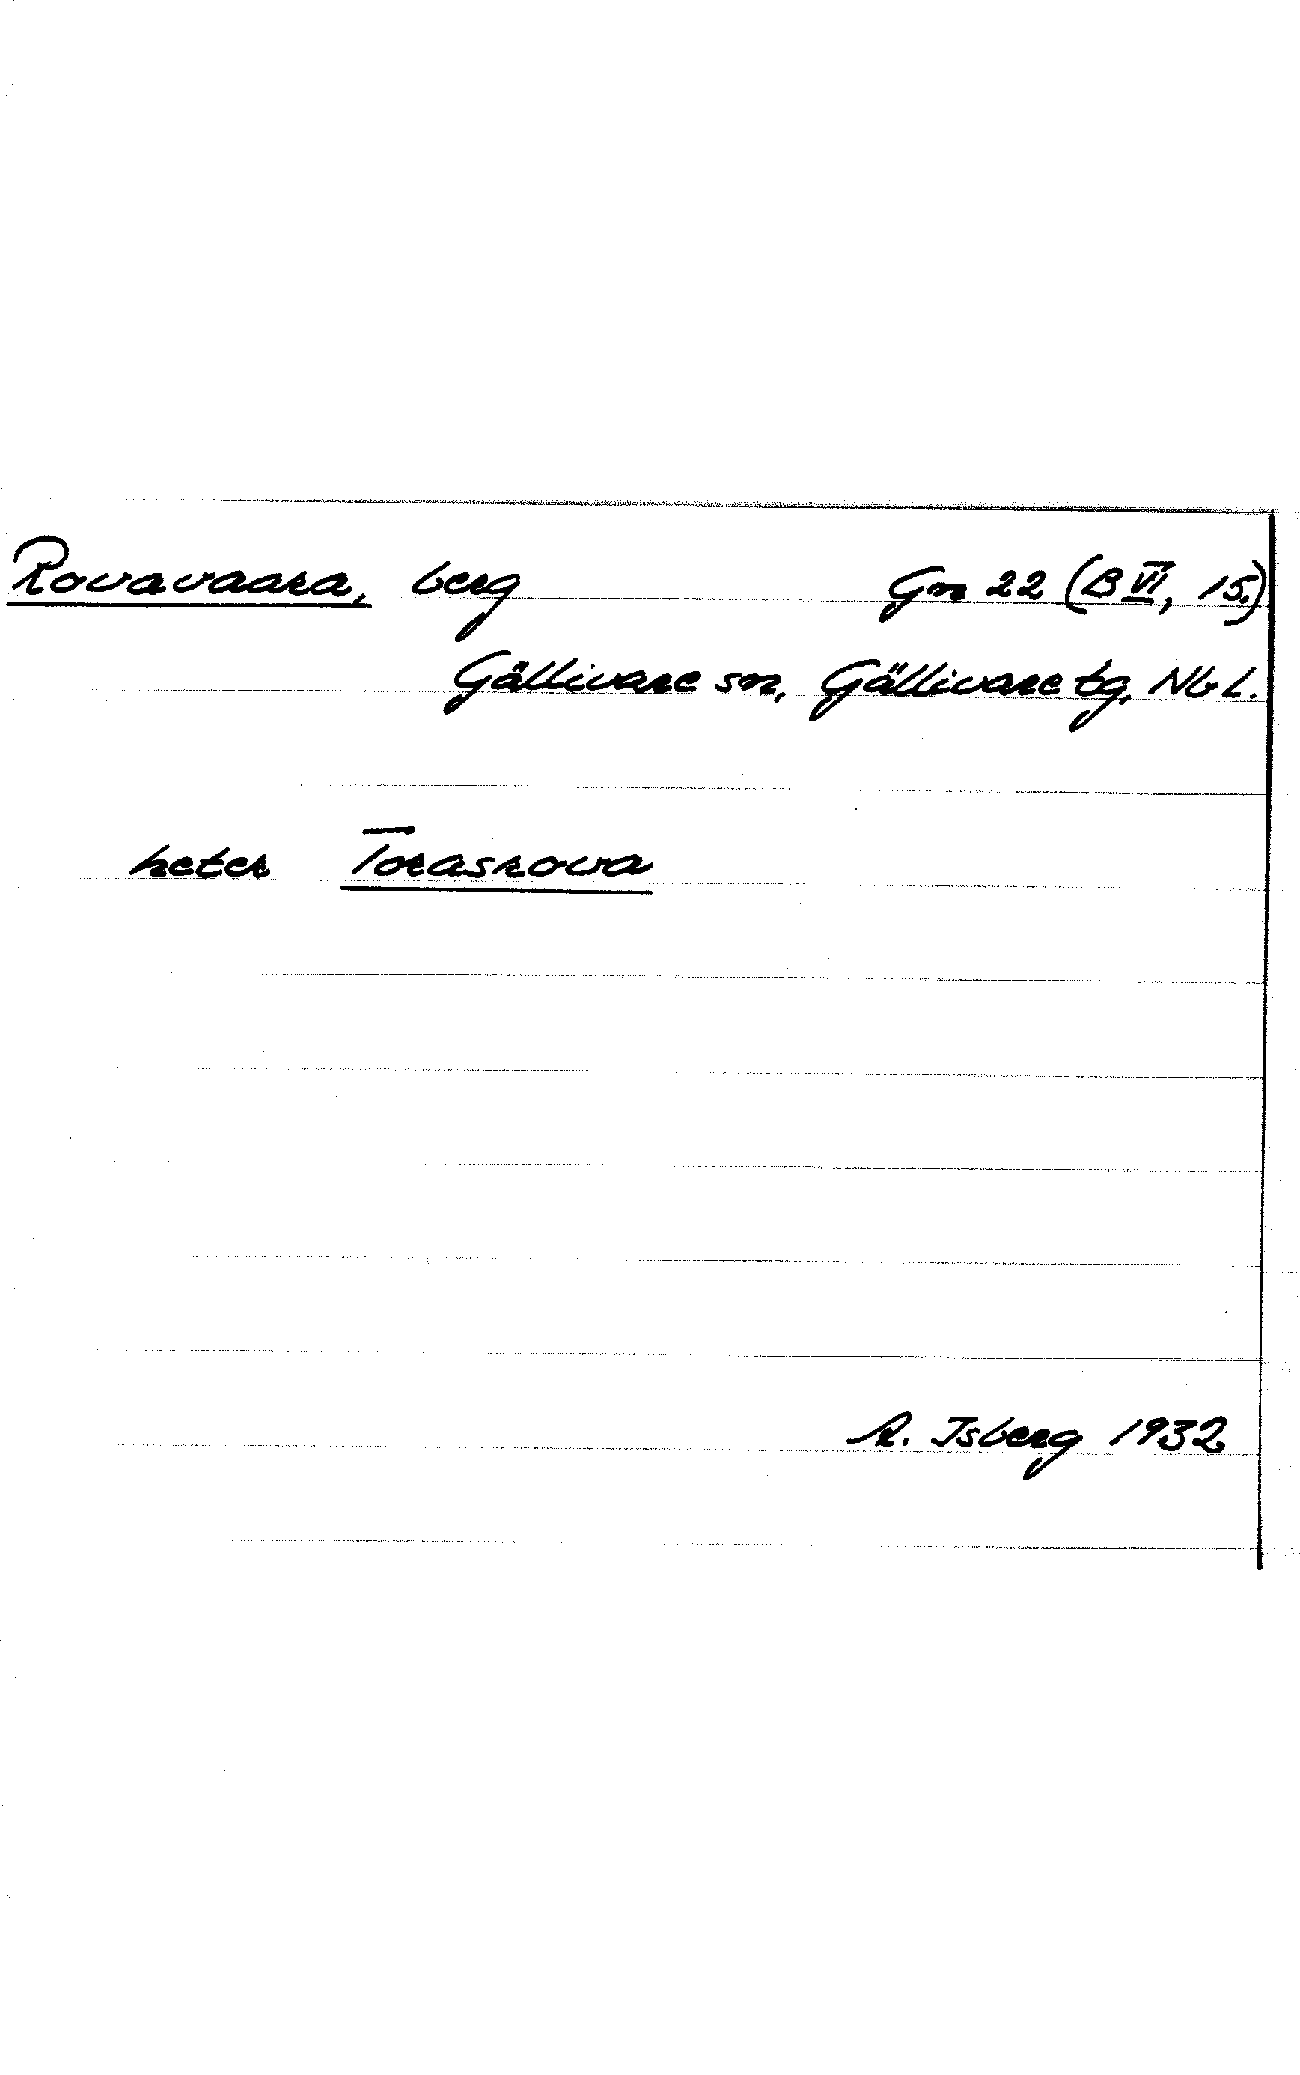 Rovavaara, berg Gn 22 (B VI, 15.)
Gällivare sn, Gällivare tg, Nb L.
heter Torasrova
R. Isberg 1932